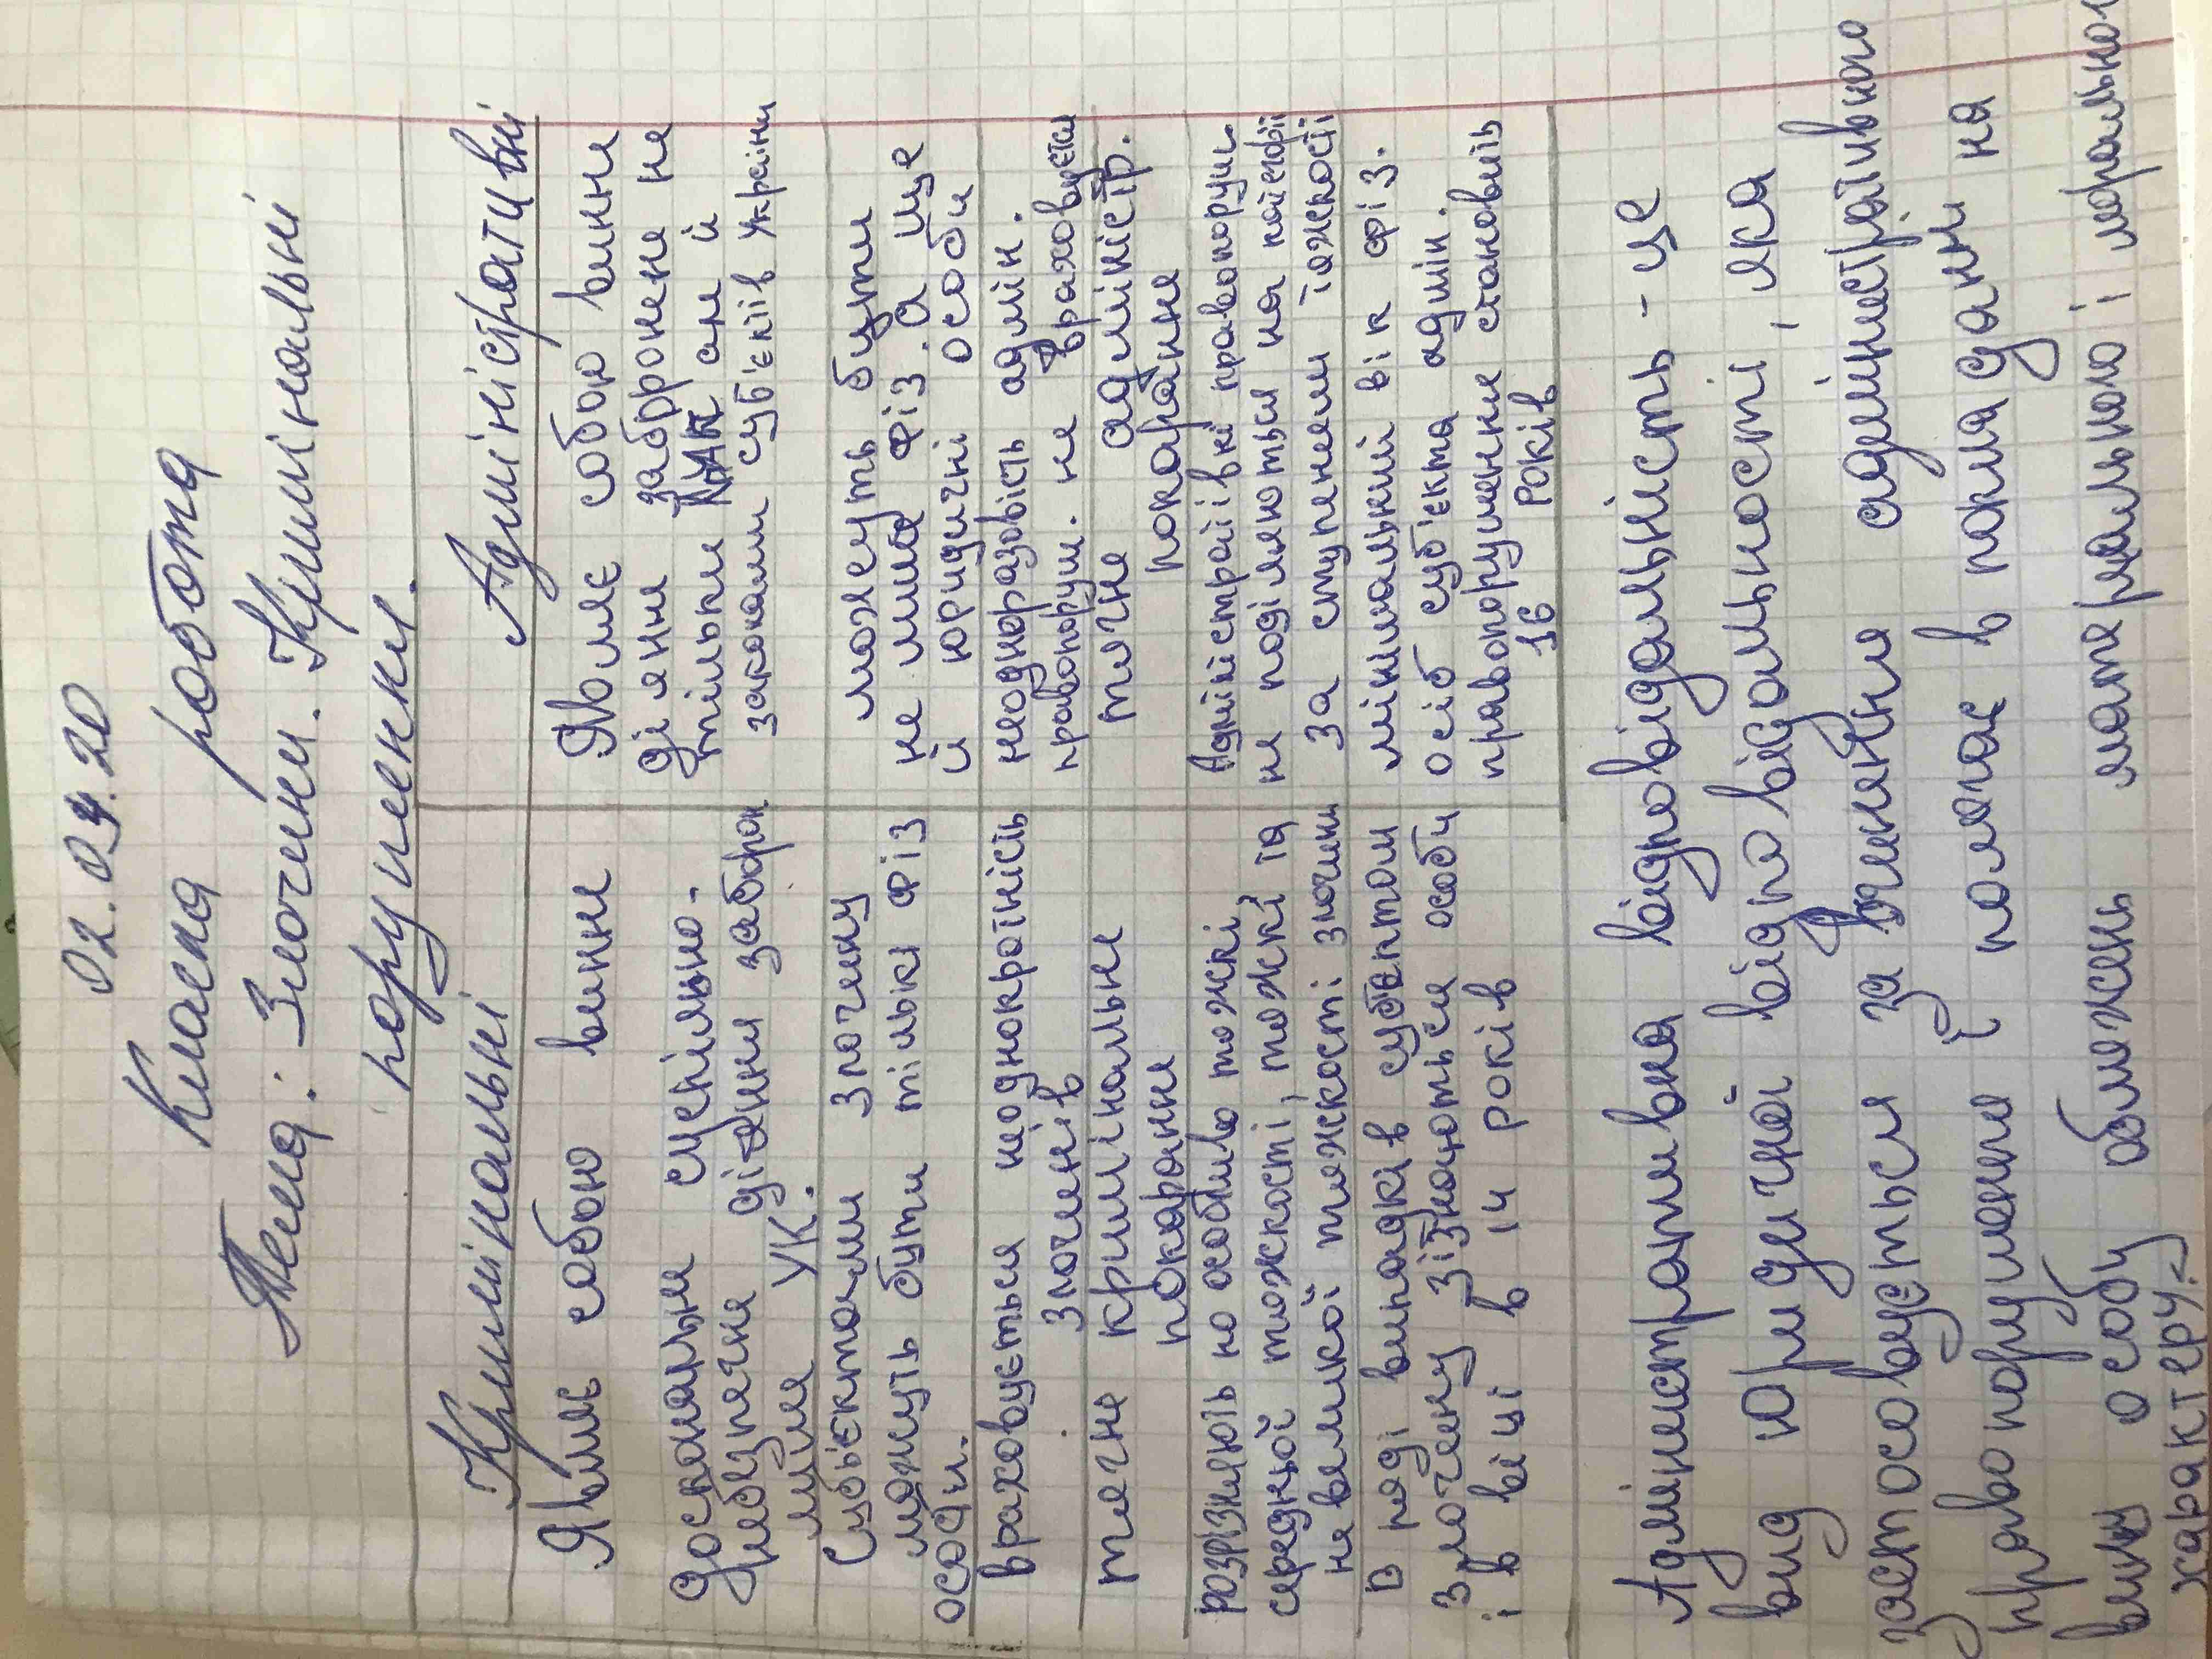 02.04.20
Класна робота
Тема: Злочини. Кримінальні
порушення.
Кримінальні
Являє собою винне
досконале суспільно-
небезпечне діяння заборон
лише УК.
Суб'єктами злочину
можуть бути тількі фіз
особи.
враховується неоднократність
злочинів
тягне кримінальне
покарання
розрізняють на особливо тяжкі,
середньої тяжкості, тяжкі та
невеликої тяжкості злочини
В ряді випадків субєктом
злочину візнаються особи
і в віці в 14 років
Адміністративні
Являє собою винне
діяння заборонене не
тільки але й
законами суб'єктів України
можуть бути
не лише фіз. а ще
й юридичні особи
неодноразовість адмін.
правопоруш. не враховується
тягне адміністр.
покарання
Адміністратівні правопоруш.
не поділяються на катєгорії
за ступенем тяжкості
мінімальний вік фіз.
осіб суб'єкта адмін.
правопорушення становить
16 років
Адміністративна відповідальність - це
вид юридичної відповідальності, яка
застосовується за вчинення адміністративного
правопорушення і полягає в накладанні на
винну особу обмежень матеріального і морального
характеру.